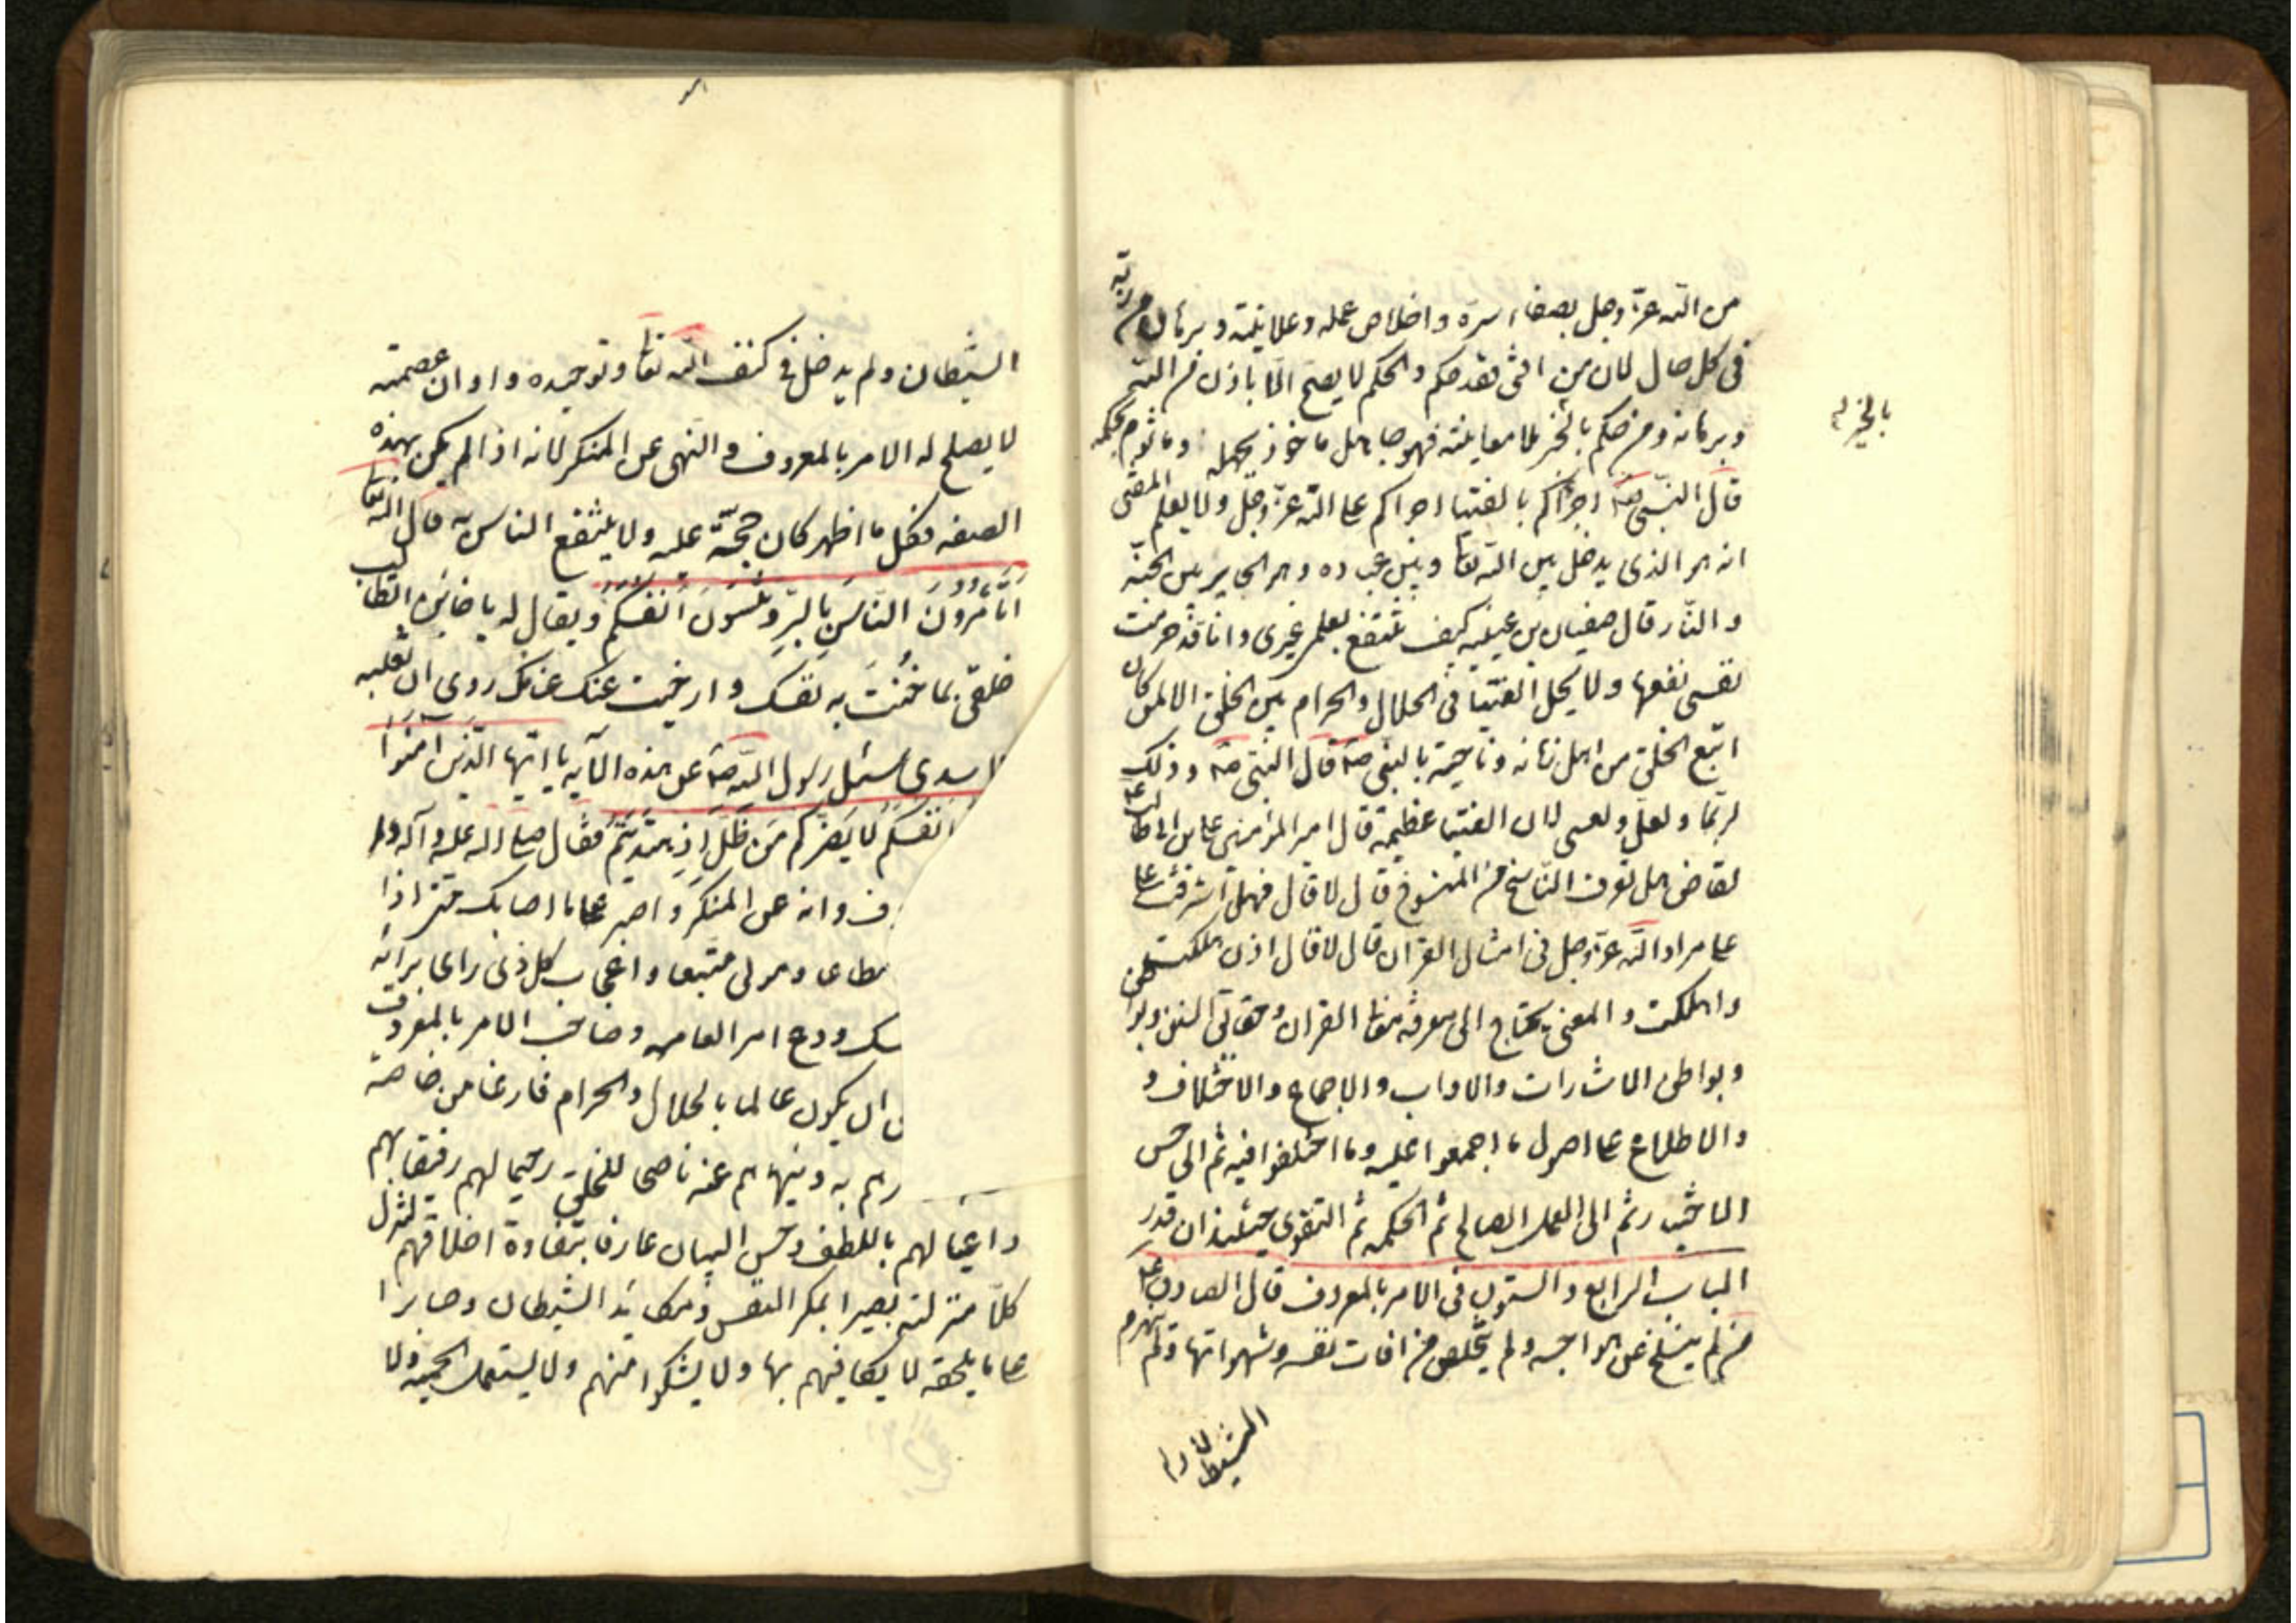 من الله عزّ وجل بصفاء سرّه و اخلاص عمله و علانيته و برهان من ربّه
فى كل حال لان من افتى فقد حكم و الحكم لا يصح الّا باذن من الله
و برهانه و من حكم بالخبر بلا معاينته فهو جاهل ماخوذ بجهله و ماثوم بحكمه
بالخبر له
قال النبى صه اجراكم بالفتيا اجراكم على الله عزّ وجلّ و لا يعلم المفتى
انه هو الذى يدخل بين الله تعا و بين عباده و هو الحاير بين الجنّه
و النّار قال صفيان بن عيينه كيف ينتفع بعلمى غيرى و انا قد حرمت
نفسى نفعها و لا يحل الفتيا فى الحلال و الحرام بين الخلق الا لمن كان
اتبع الخلق من اهل زمانه و ناحيته بالنبى صه قال النبى صه و ذلك
لربّما و لعلّ و لعسى لان الفتيا عظيمة قال امير المؤمنين على بن ابى طالب ع
لقاض هل تعرف النّاسخ من المنسوخ قال لا قال فهل اشرفت على
على مراد الله عزّ وجل فى امثال القران قال لا قال اذن هلكت
و اهلكت و المفتى يحتاج الى معرفة معانى القران و حقائق السنن و بواطن
و بواطن الاشارات و الاداب و الاجماع و الاختلاف و
و الاطلاع على اصول ما اجمعوا عليه و ما اختلفوا فيه ثم الى حسن
الاختيار ثم الى العمل الصالح ثم الحكمه ثم التقوى حينئذ ان قدر
الباب الرابع و الستون فى الامر بالمعروف قال الصادق ع
من لم ينسلخ عن هواجسه و لم يتخلص من افات نفسه و شهواتها و لم يهزم
الشيطان و لم
الشيطان و لم يدخل فى كنف الله تعا و توحيده و اوان عصمته
لا يصلح له الامر بالمعروف و النهى عن المنكر لانه اذا لم يكن بهذه
الصفه فكل ما اظهر كان حجّة عليه و لا ينتفع الناس به قال الله تعا
اتامُرُونَ النّاسَ بِالبِرِّ وَ تَنْسَوْنَ اَنْفُسَكُمْ و يقال له يا خائن اتطالب
خلقى بما خُنْتَ به نفسك و ارخيت عنك عنانك روى ان ثعلبه
الاسدى سئل رسول الله صه عن هذه الآيه يا ايّها الّذين آمنوا
انفسكم لا يضركم من ظلّ اذا هتديتم فقال صلى اله عليه و آله و
ف و انه عن المنكر و اصبر على ما اصابك حتى اذا
مطاعا و هوى متبعا و اعجاب كل ذى راى برايه
سك و دع امر العامه و صاحب الامر بالمعروف
ان يكون عالما بالحلال و الحرام فارغا من خاصة
رهم به و ينهاهم عنه ناصحا للخلق رحيما لهم رفيقا بهم
داعيا لهم باللطف و حسن البيان عارفا بتفاوة اخلاقهم لينزل
كلّا منزلته بصيرا بمكر النفس و مكائد الشيطان و صابرا
على ما يلحقه لا يكافيهم بها و لا يشكوا منهم و لا يستعمل الحميه و لا